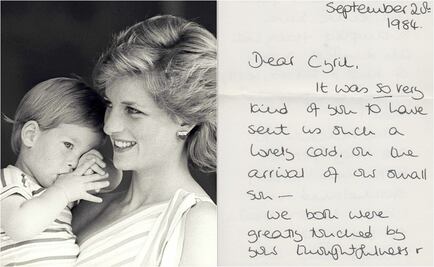 September 20th
1984.
Dear Cyril,
It was so very
kind of you to have
sent us such a
lovely card, on the
arrival of our small
son —
We both were
greatly touched by
your thoughtfulness &